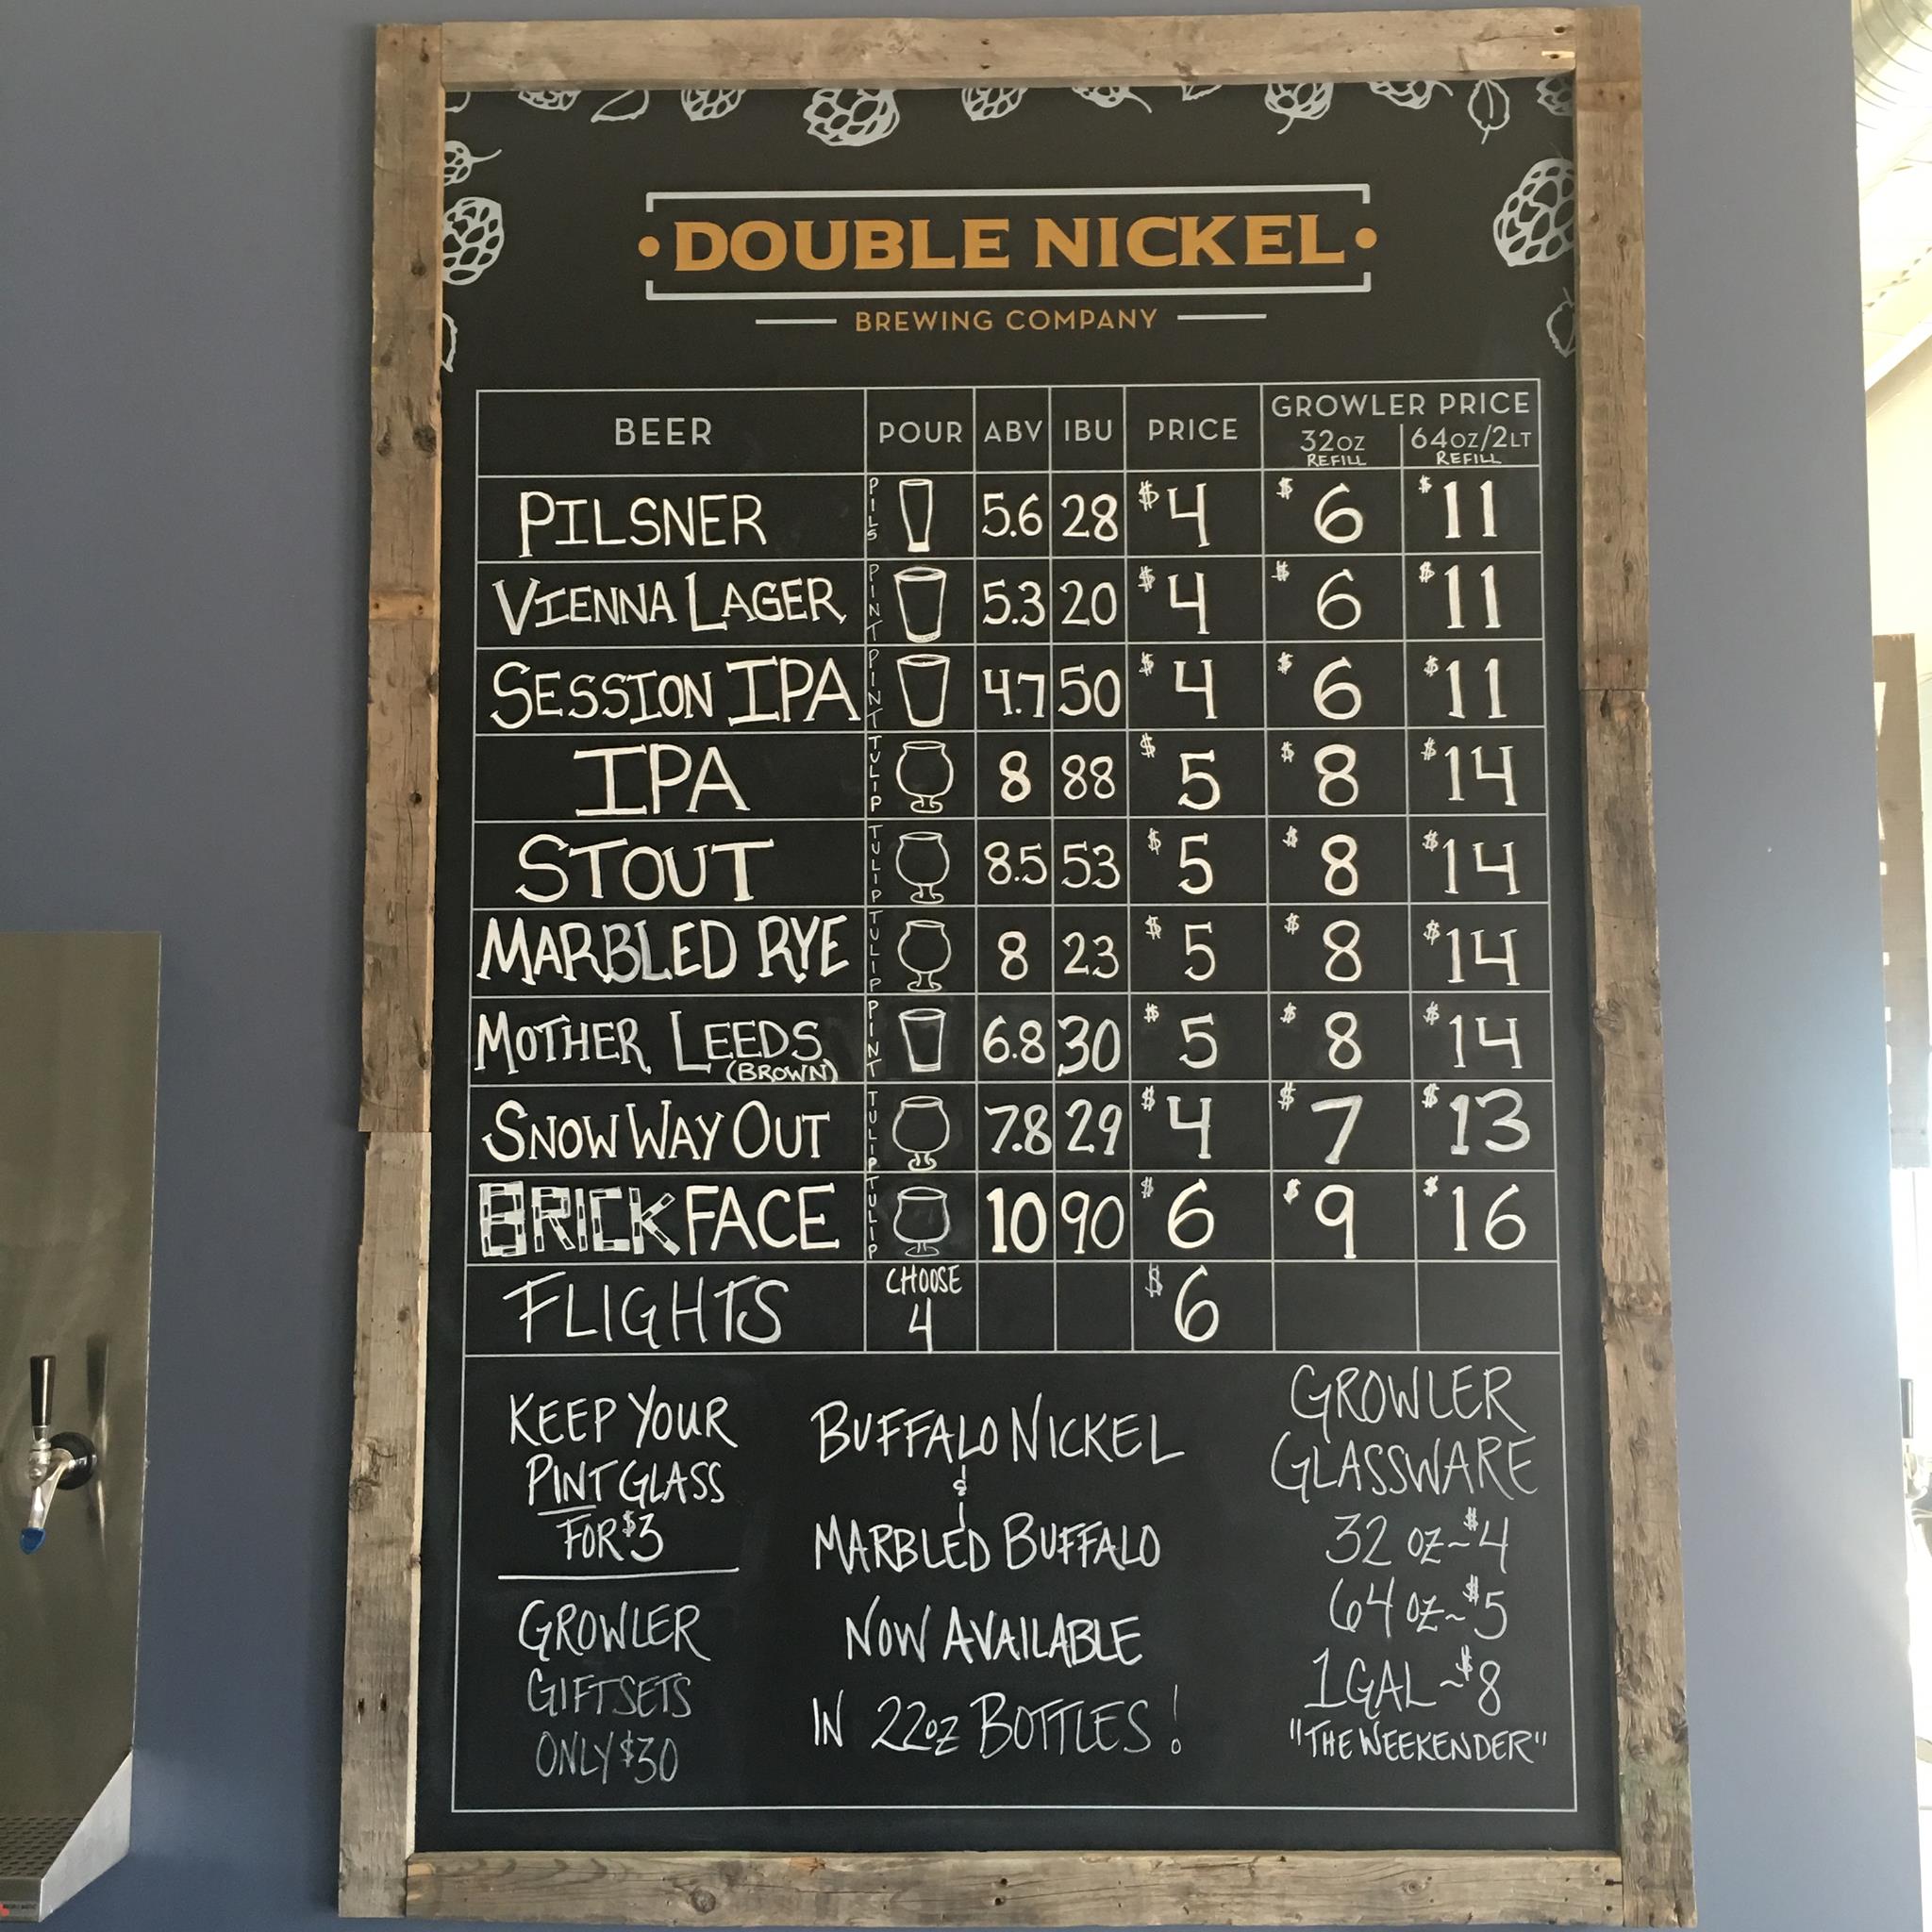 DOUBLE NICKEL
BREWING COMPANY
BEER POUR ABV IBU PRICE GROWLER PRICE
32OZ REFILL 64OZ/2LT REFILL
PILSNER PILS 5.6 28 $4 $6 $11
VIENNA LAGER PINT 5.3 20 $4 $6 $11
SESSION IPA PINT 4.7 50 $4 $6 $11
IPA TULIP 8 88 $5 $8 $14
STOUT TULIP 8.5 53 $5 $8 $14
MARBLED RYE TULIP 8 23 $5 $8 $14
MOTHER LEEDS (BROWN) PINT 6.8 30 $5 $8 $14
SNOW WAY OUT TULIP 7.8 29 $4 $7 $13
BRICKFACE TULIP 10 90 $6 $9 $16
FLIGHTS CHOOSE 4 $6
KEEP YOUR
PINT GLASS
FOR $3
GROWLER
GIFTSETS
ONLY $30
BUFFALO NICKEL
&
MARBLED BUFFALO
NOW AVAILABLE
IN 22oz BOTTLES!
GROWLER
GLASSWARE
32 oz ~ $4
64 oz ~ $5
1GAL ~ $8
"THE WEEKENDER"